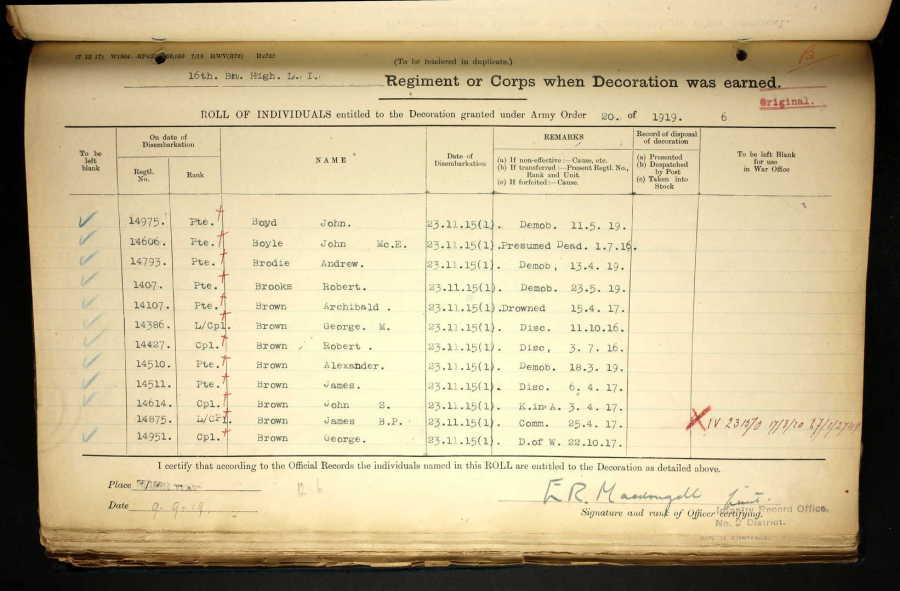 (To be rendered in duplicate.)
16th. Bn. High. L. I. Regiment or Corps when Decoration was earned.
Original.
ROLL OF INDIVIDUALS entitled to the Decoration granted under Army Order 20. of 1919. 6
To be left blank
On date of Disembarkation
Regtl. No. Rank
NAME
Date of Disembarkation
REMARKS
(a) If non-effective:—Cause, etc.
(b) If transferred:—Present Regtl. No., Rank and Unit.
(c) If forfeited:—Cause.
Record of disposal of decoration
(a) Presented
(b) Despatched by Post
(c) Taken into Stock
To be left Blank for use in War Office
14975. Pte. Boyd John. 23.11.15(1). Demob. 11.5. 19.
14606. Pte. Boyle John Mc.E. 23.11.15(1). Presumed Dead. 1.7.16.
14793. Pte. Brodie Andrew. 23.11.15(1). Demob, 13.4. 19.
1407. Pte. Brooks Robert. 23.11.15(1). Demob. 23.5. 19.
14107. Pte. Brown Archibald . 23.11.15(1). Drowned 15.4. 17.
14386. L/Cpl. Brown George. M. 23.11.15(1). Disc. 11.10.16.
14427. Cpl. Brown Robert . 23.11.15(1). Disc, 3. 7. 16.
14510. Pte. Brown Alexander. 23.11.15(1). Demob. 18.3. 19.
14511. Pte. Brown James. 23.11.15(1). Disc. 6. 4. 17.
14614. Cpl. Brown John S. 23.11.15(1). K.in A. 3. 4. 17.
14875. L/Cpl. Brown James B.P. 23.11.15(1). Comm. 25.4. 17.
14951. Cpl. Brown George. 23.11.15(1). D.of W. 22.10.17.
I certify that according to the Official Records the individuals named in this ROLL are entitled to the Decoration as detailed above.
Place
E.R. Macdougall Lieut.
Date 9.9.19.
Signature and rank of Officer certifying.
Infantry Record Office,
No. 2 District.